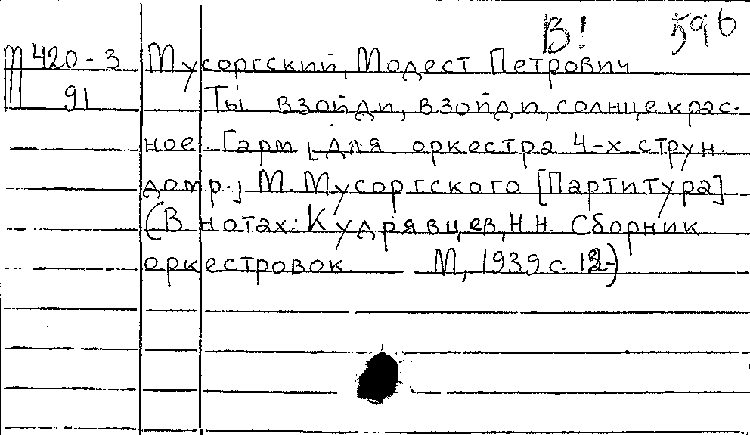 В! 596
М 420-3 Мусоргский, Модест Петрович
91 Ты взойди, взойди, солнце крас-
ное. Гарм. для оркестра 4-х струн.
домр., М. Мусоргского [Партитура]
(В нотах: Кудрявцев, Н.Н. Сборник
оркестровок М, 1939 с.